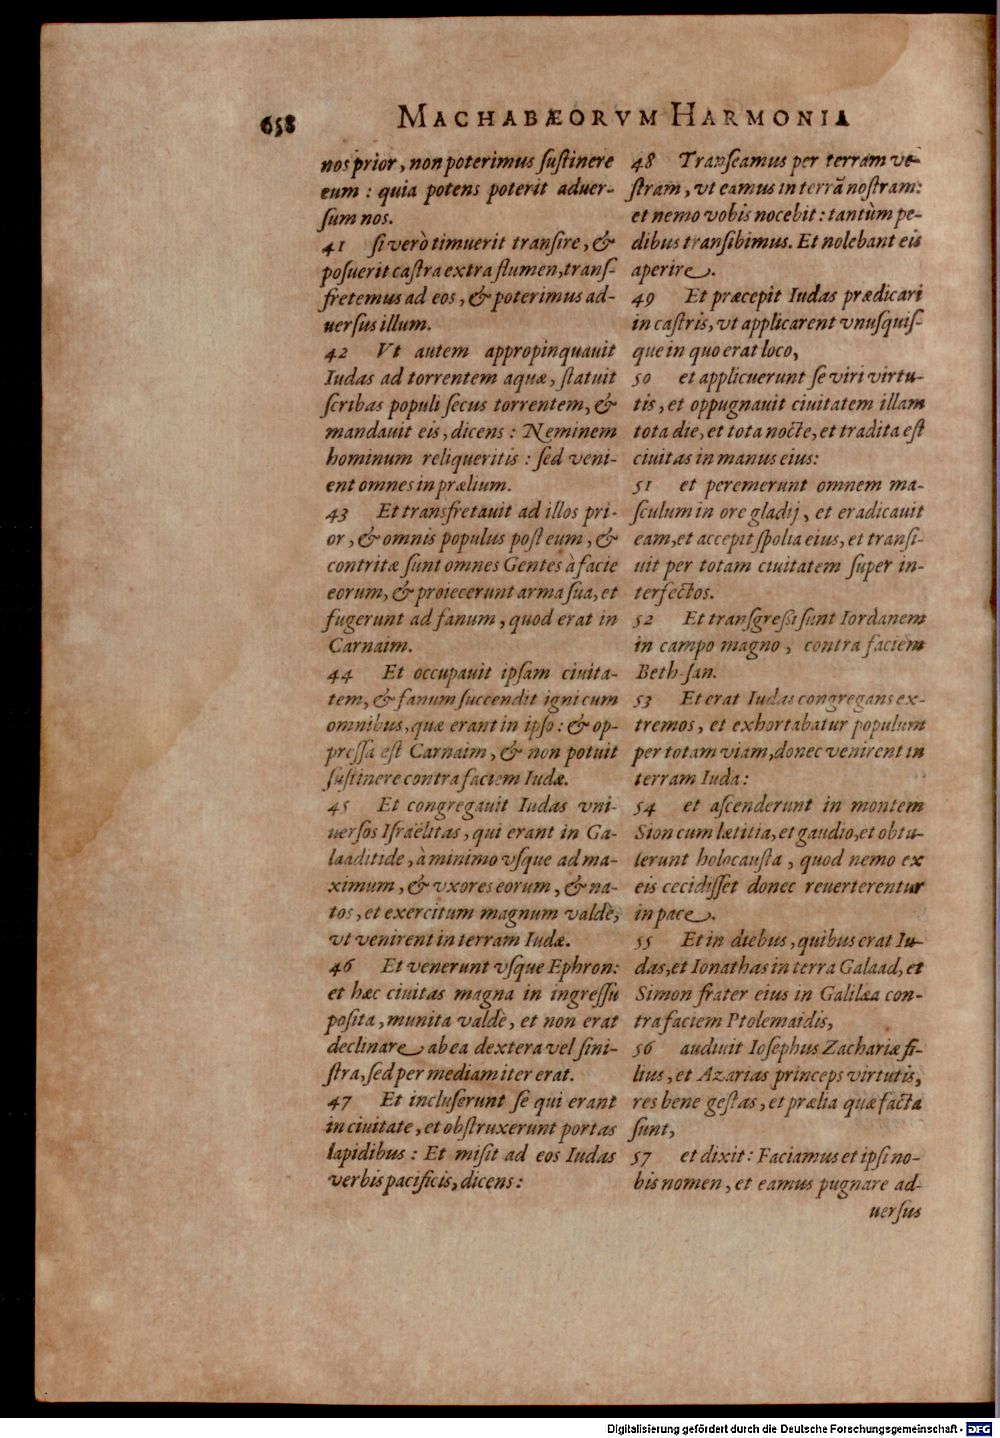 658 MACHABÆORVM HARMONIA
nos prior, non poterimus ſuſtinere
eum : quia potens poterit aduer-
ſum nos.
41 ſi verò timuerit tranſire, &
poſuerit caſtra extra flumen, tranſ-
fretemus ad eos, & poterimus ad-
uerſus illum.
42 Vt autem appropinquauit
Iudas ad torrentem aquæ, ſtatuit
ſcribas populi ſecus torrentem, &
mandauit eis, dicens : Neminem
hominum reliqueritis : ſed veni-
ent omnes in prælium.
43 Et transfretauit ad illos pri-
or, & omnis populus poſt eum, &
contritæ ſunt omnes Gentes à facie
eorum, & proiecerunt arma ſua, et
fugerunt ad fanum, quod erat in
Carnaim.
44 Et occupauit ipſam ciuita-
tem, & fanum ſuccendit igni cum
omnibus, quæ erant in ipſo : & op-
preſſa eſt Carnaim, & non potuit
ſuſtinere contra faciem Iudæ.
45 Et congregauit Iudas vni-
uerſos Iſraëlitas, qui erant in Ga-
laaditide, à minimo vſque ad ma-
ximum, & vxores eorum, & na-
tos, et exercitum magnum valdè,
vt venirent in terram Iudæ.
46 Et venerunt vſque Ephron:
et hæc ciuitas magna in ingreſſu
poſita, munita valdè, et non erat
declinare ab ea dextera vel ſini-
ſtra, ſed per mediam iter erat.
47 Et incluſerunt ſe qui erant
in ciuitate, et obſtruxerunt portas
lapidibus : Et miſit ad eos Iudas
verbis pacificis, dicens :
48 Tranſeamus per terram ve-
ſtram, vt eamus in terrã noſtram:
et nemo vobis nocebit : tantùm pe-
dibus tranſibimus. Et nolebant eis
aperire.
49 Et præcepit Iudas prædicari
in caſtris, vt applicarent vnuſquiſ-
que in quo erat loco,
50 et applicuerunt ſe viri virtu-
tis, et oppugnauit ciuitatem illam
tota die, et tota nocte, et tradita eſt
ciuitas in manus eius:
51 et peremerunt omnem ma-
ſculum in ore gladij, et eradicauit
eam, et accepit ſpolia eius, et tranſi-
uit per totam ciuitatem ſuper in-
terfectos.
52 Et tranſgreßi ſunt Iordanem
in campo magno, contra faciem
Beth-ſan.
53 Et erat Iudas congregans ex-
tremos, et exhortabatur populum
per totam viam, donec venirent in
terram Iuda:
54 et aſcenderunt in montem
Sion cum lætitia, et gaudio, et obtu-
lerunt holocauſta, quod nemo ex
eis cecidiſſet donec reuerterentur
in pace.
55 Et in diebus, quibus erat Iu-
das, et Ionathas in terra Galaad, et
Simon frater eius in Galilæa con-
tra faciem Ptolemaidis,
56 audiuit Ioſephus Zachariæ fi-
lius, et Azarias princeps virtutis,
res bene geſtas, et prælia quæ facta
ſunt,
57 et dixit : Faciamus et ipſi no-
bis nomen, et eamus pugnare ad-
uerſus
Digitalisierung gefördert durch die Deutsche Forschungsgemeinschaft - DFG